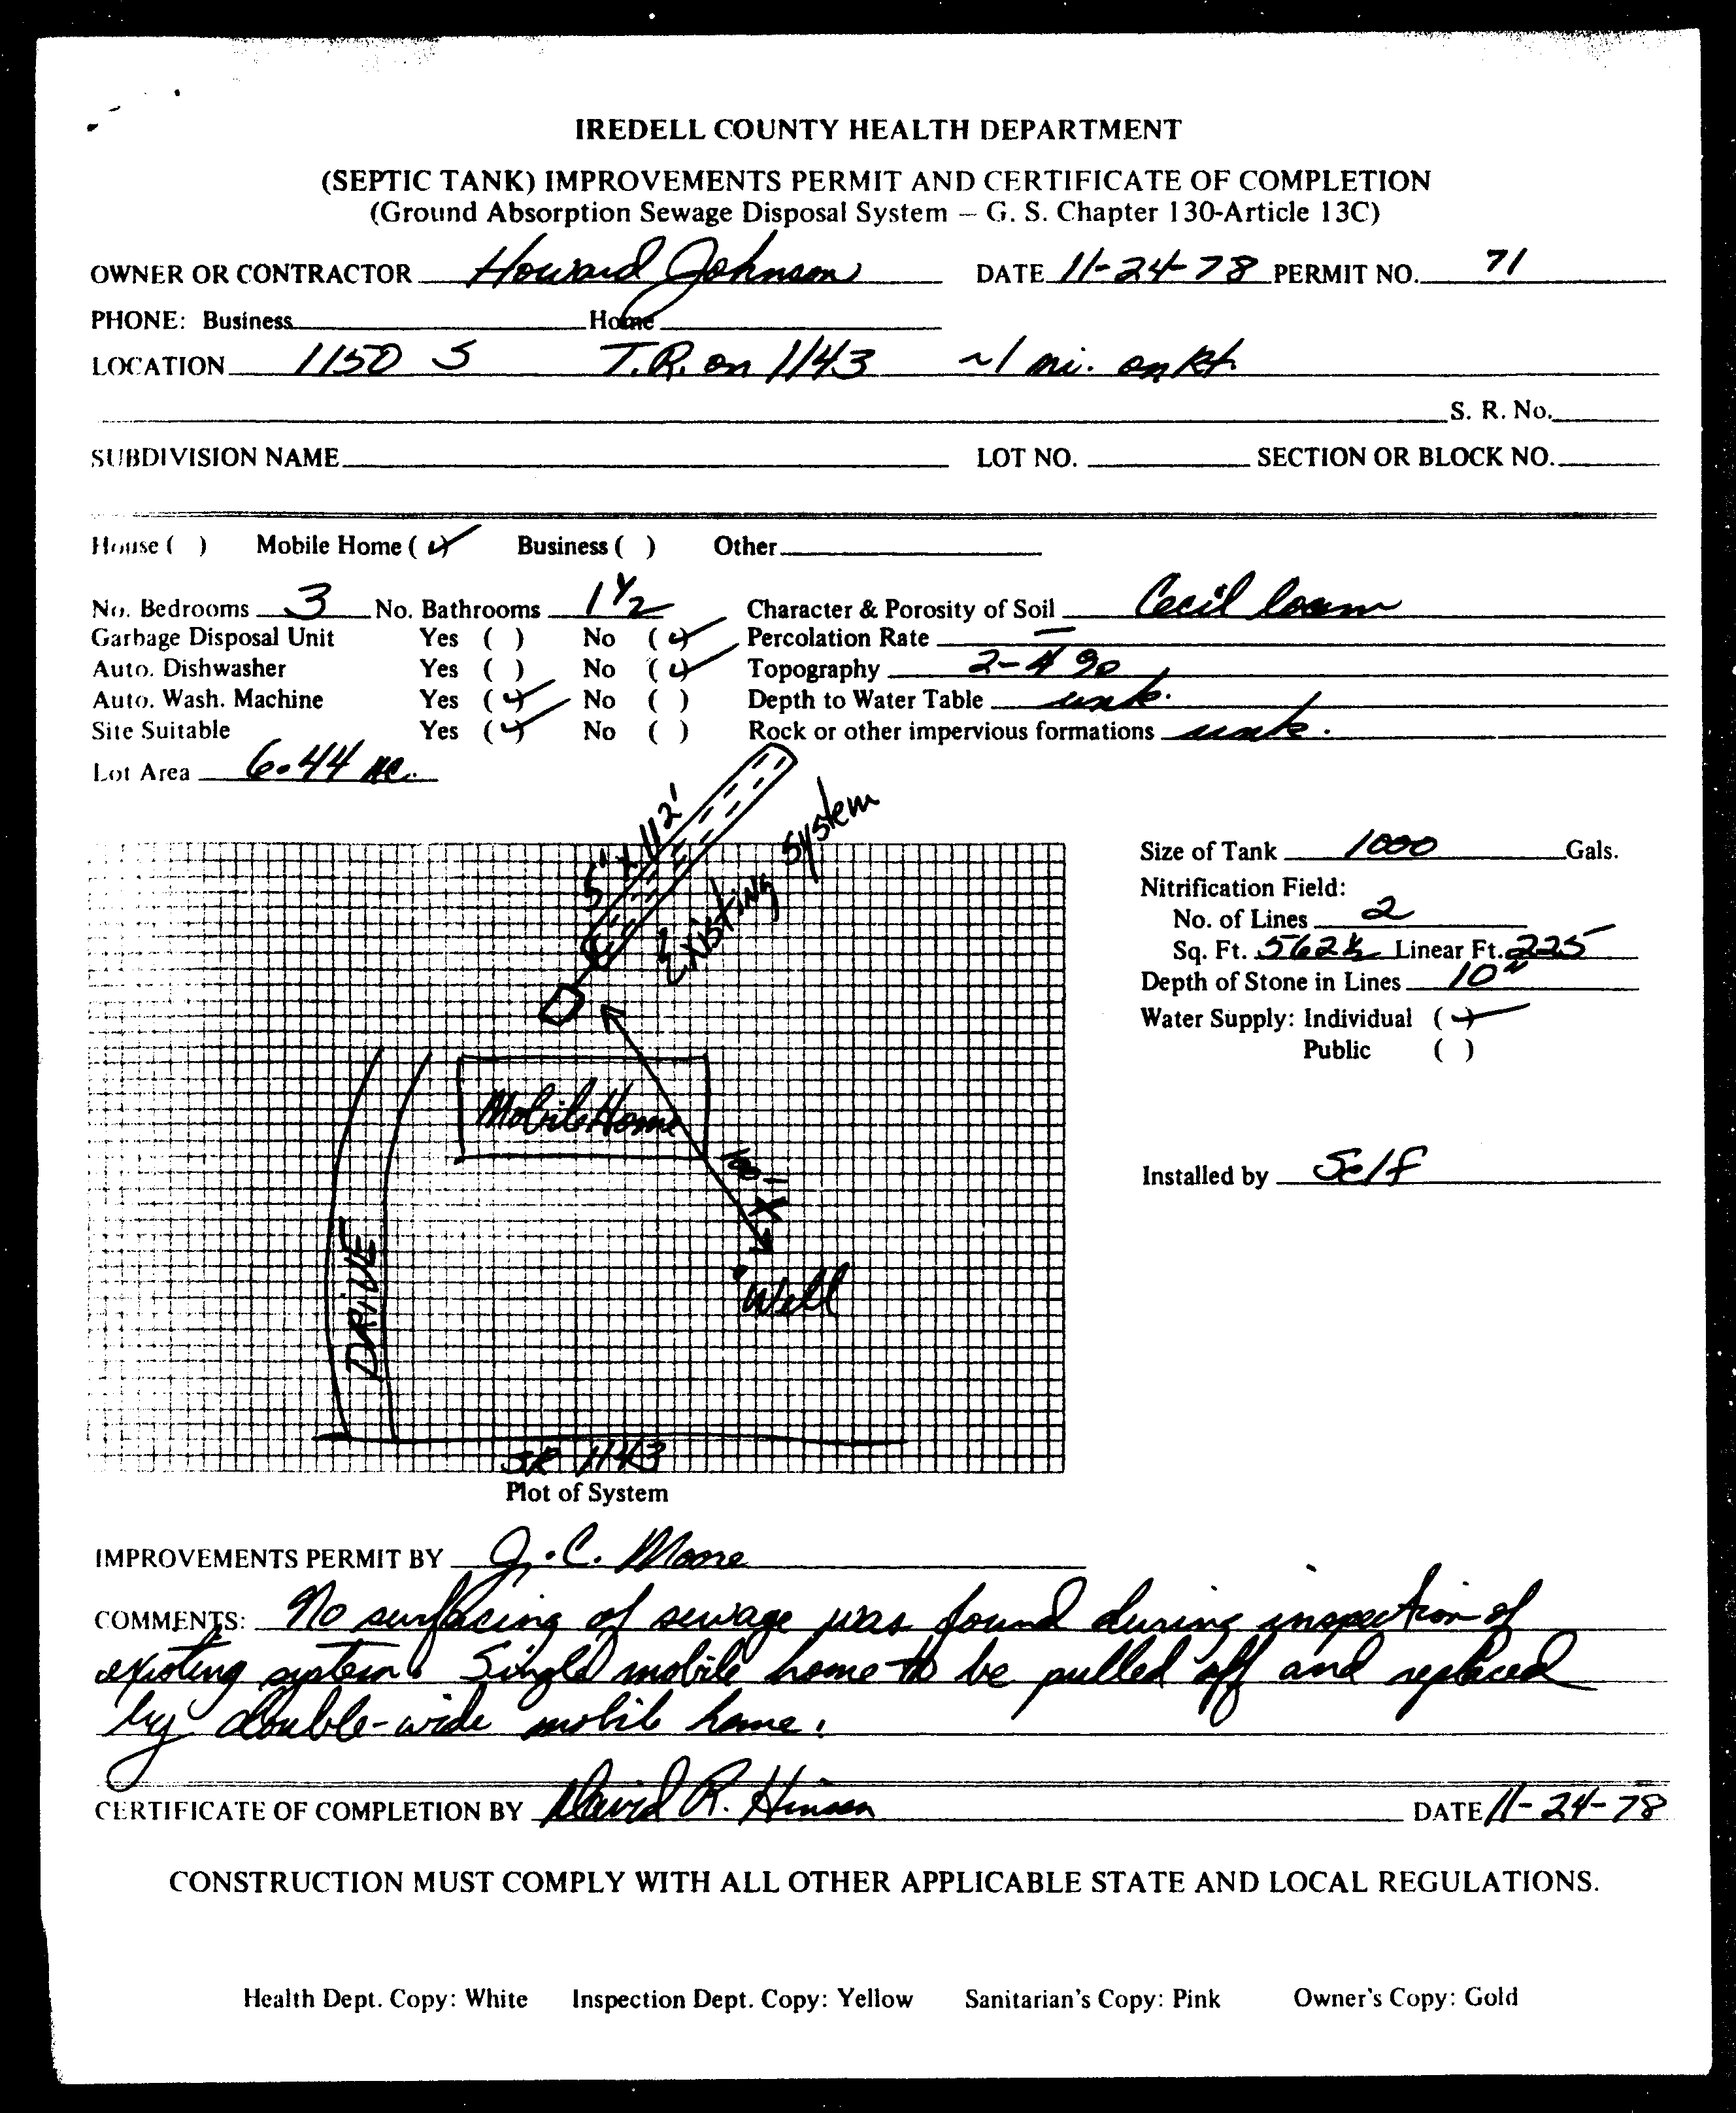 IREDELL COUNTY HEALTH DEPARTMENT
(SEPTIC TANK) IMPROVEMENTS PERMIT AND CERTIFICATE OF COMPLETION
(Ground Absorption Sewage Disposal System — G. S. Chapter 130-Article 13C)
OWNER OR CONTRACTOR Howard Johnson DATE 11-24-78 PERMIT NO. 71
PHONE: Business Home
LOCATION 1150 S T.R. on 1143 ~1 mi. on Rt.
S. R. No.
SUBDIVISION NAME LOT NO. SECTION OR BLOCK NO.
House ( ) Mobile Home (✓) Business ( ) Other
No. Bedrooms 3 No. Bathrooms 1 1/2 Character & Porosity of Soil Cecil loam
Garbage Disposal Unit Yes ( ) No (✓) Percolation Rate —
Auto. Dishwasher Yes ( ) No (✓) Topography 2-4 %
Auto. Wash. Machine Yes (✓) No ( ) Depth to Water Table unk.
Site Suitable Yes (✓) No ( ) Rock or other impervious formations unk.
Lot Area 6.44 ac.
5' x 112'
Existing System
Size of Tank 1000 Gals.
Nitrification Field:
No. of Lines 2
Sq. Ft. 562½ Linear Ft. 225
Depth of Stone in Lines 10"
Water Supply: Individual (✓)
Public ( )
Mobile Home
Installed by Self
Well
DRIVE
SR 1143
Plot of System
IMPROVEMENTS PERMIT BY J.C. Moore
COMMENTS: No surfacing of sewage was found during inspection of
existing system. Single mobile home to be pulled off and replaced
by double-wide mobile home.
CERTIFICATE OF COMPLETION BY David R. Hinson DATE 11-24-78
CONSTRUCTION MUST COMPLY WITH ALL OTHER APPLICABLE STATE AND LOCAL REGULATIONS.
Health Dept. Copy: White Inspection Dept. Copy: Yellow Sanitarian's Copy: Pink Owner's Copy: Gold